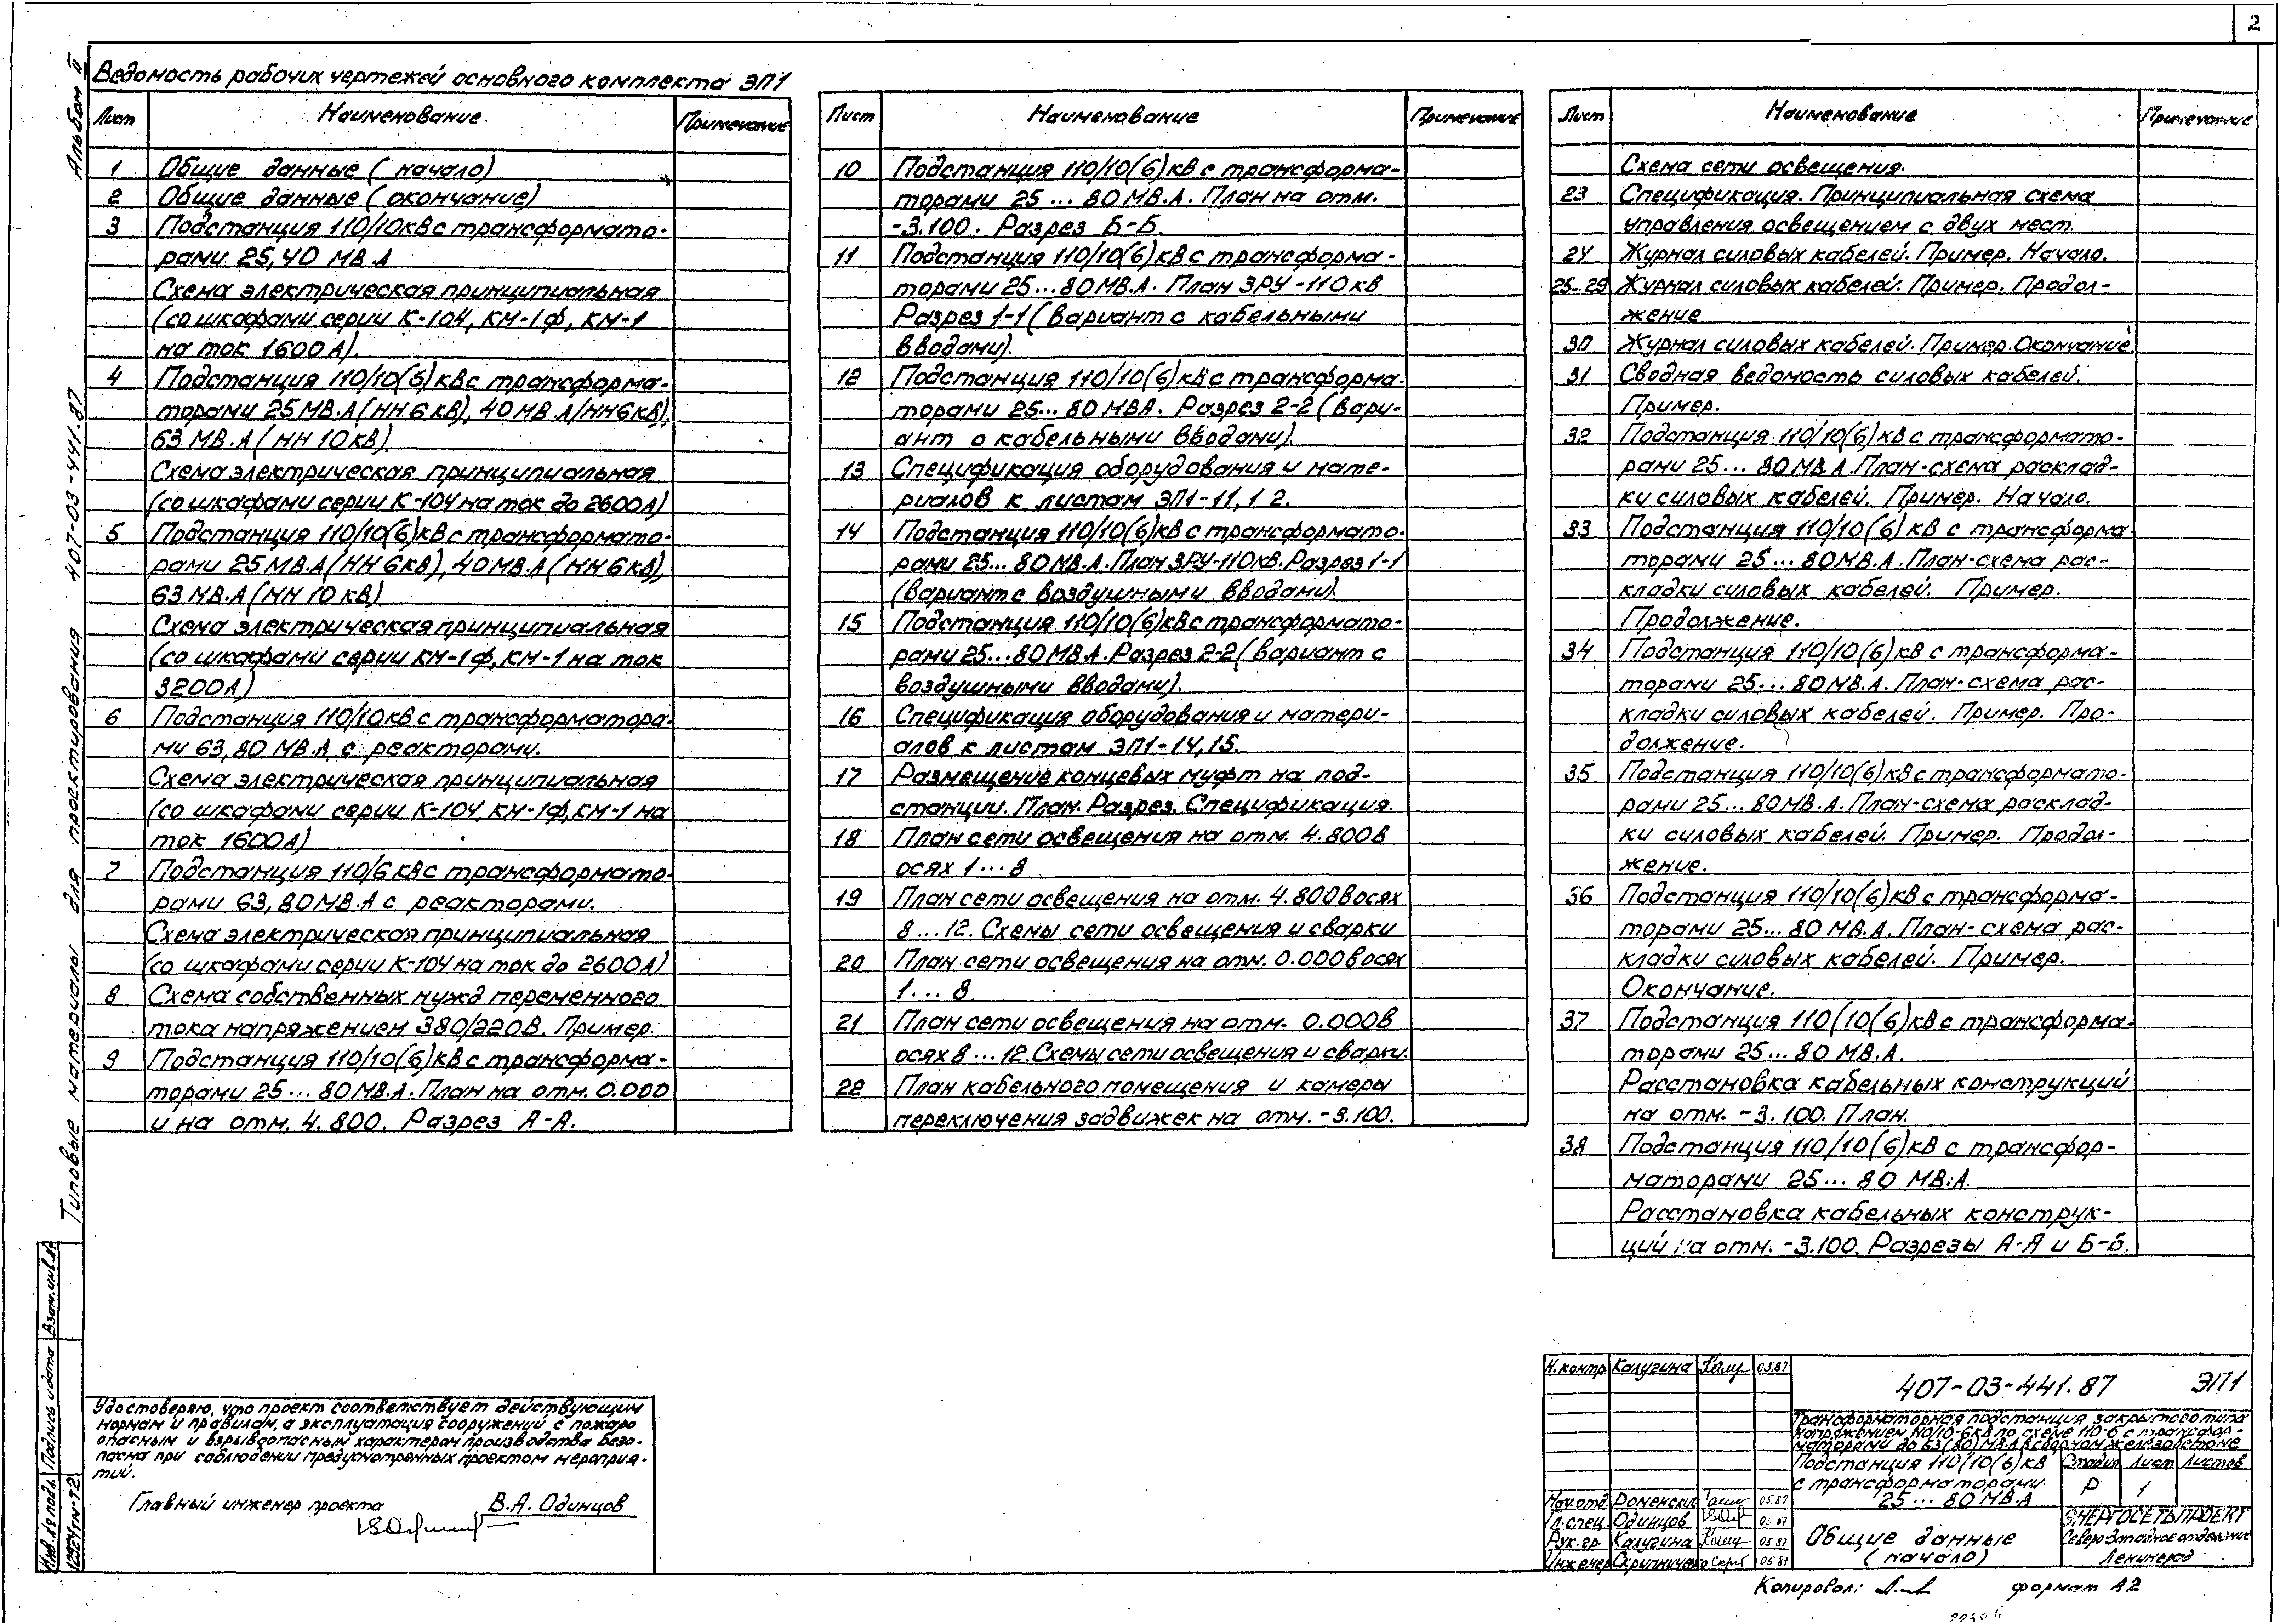 2
Альбом II
Типовые материалы для проектирования 407-03-441.87
Ведомость рабочих чертежей основного комплекта ЭП1
Лист Наименование Примечание
1 Общие данные (начало)
2 Общие данные (окончание)
3 Подстанция 110/10кВ с трансформато-
рами 25,40 МВ.А
Схема электрическая принципиальная
(со шкафами серии К-104, КМ-1Ф, КМ-1
на ток 1600А).
4 Подстанция 110/10(6)кВ с трансформа-
торами 25МВ.А(НН6кВ), 40МВ.А(НН6кВ),
63 МВ.А(НН 10кВ)
Схема электрическая принципиальная
(со шкафами серии К-104 на ток до 2600А)
5 Подстанция 110/10(6)кВ с трансформато-
рами 25МВ.А(НН6кВ), 40МВ.А(НН6кВ),
63МВ.А(НН 10кВ)
Схема электрическая принципиальная
(со шкафами серии КМ-1Ф, КМ-1 на ток
3200А)
6 Подстанция 110/10кВ с трансформатора-
ми 63,80 МВ.А с реакторами.
Схема электрическая принципиальная
(со шкафами серии К-104, КМ-1Ф, КМ-1 на
ток 1600А)
7 Подстанция 110/6кВ с трансформато-
рами 63,80МВ.А с реакторами.
Схема электрическая принципиальная
(со шкафами серии К-104 на ток до 2600А)
8 Схема собственных нужд переменного
тока напряжением 380/220В. Пример.
9 Подстанция 110/10(6)кВ с трансформа-
торами 25...80МВ.А. План на отм. 0.000
и на отм. 4.800. Разрез А-А.
Лист Наименование Примечание
10 Подстанция 110/10(6)кВ с трансформа-
торами 25...80МВ.А. План на отм.
-3.100. Разрез Б-Б.
11 Подстанция 110/10(6)кВ с трансформа-
торами 25...80МВ.А. План ЗРУ-110кВ
Разрез 1-1(вариант с кабельными
вводами).
12 Подстанция 110/10(6)кВ с трансформа-
торами 25...80МВА. Разрез 2-2(вари-
ант о кабельными вводами).
13 Спецификация оборудования и мате-
риалов к листам ЭП1-11,12.
14 Подстанция 110/10(6)кВ с трансформато-
рами 25...80МВ.А. План ЗРУ-110кВ. Разрез 1-1
(вариант с воздушными вводами).
15 Подстанция 110/10(6)кВ с трансформато-
рами 25...80МВ.А. Разрез 2-2(вариант с
воздушными вводами).
16 Спецификация оборудования и матери-
алов к листам ЭП1-14,15.
17 Размещение концевых муфт на под-
станции. План. Разрез. Спецификация.
18 План сети освещения на отм. 4.800 в
осях 1...8
19 План сети освещения на отм. 4.800 в осях
8...12. Схемы сети освещения и сварки
20 План сети освещения на отм. 0.000 в осях
1...8
21 План сети освещения на отм. 0.000 в
осях 8...12. Схемы сети освещения и сварки.
22 План кабельного помещения и камеры
переключения задвижек на отм. -3.100.
Лист Наименование Примечание
Схема сети освещения.
23 Спецификация. Принципиальная схема
управления освещением с двух мест.
24 Журнал силовых кабелей. Пример. Начало.
25..29 Журнал силовых кабелей. Пример. Продол-
жение
30 Журнал силовых кабелей. Пример. Окончание.
31 Сводная ведомость силовых кабелей.
Пример.
32 Подстанция 110/10(6)кВ с трансформато-
рами 25...80МВ.А. План-схема расклад-
ки силовых кабелей. Пример. Начало.
33 Подстанция 110/10(6)кВ с трансформа-
торами 25...80МВ.А. План-схема рас-
кладки силовых кабелей. Пример.
Продолжение.
34 Подстанция 110/10(6)кВ с трансформа-
торами 25...80МВ.А. План-схема рас-
кладки силовых кабелей. Пример. Про-
должение.
35 Подстанция 110/10(6)кВ с трансформато-
рами 25...80МВ.А. План-схема расклад-
ки силовых кабелей. Пример. Продол-
жение.
36 Подстанция 110/10(6)кВ с трансформа-
торами 25...80МВ.А. План-схема рас-
кладки силовых кабелей. Пример.
Окончание.
37 Подстанция 110/10(6)кВ с трансформа-
торами 25...80МВ.А.
Расстановка кабельных конструкций
на отм. -3.100. План.
38 Подстанция 110/10(6)кВ с трансфор-
маторами 25...80 МВ.А.
Расстановка кабельных конструк-
ций на отм. -3.100. Разрезы А-А и Б-Б.
Удостоверяю, что проект соответствует действующим
нормам и правилам, а эксплуатация сооружений с пожаро
опасным и взрывоопасным характером производства безо-
пасна при соблюдении предусмотренных проектом мероприя-
тий.
Главный инженер проекта В.А. Одинцов
Инв.№ подл. Подпись и дата Взам.инв.№
12924тм-Т2
Н.контр. Калугина 05.87
407-03-441.87 ЭП1
Трансформаторная подстанция закрытого типа
напряжением 110/10-6кВ по схеме 110-6 с трансфор-
маторами до 63(80)МВ.А в сборном железобетоне
Подстанция 110/10(6)кВ
с трансформаторами
25...80 МВ.А
Стадия Лист Листов
Р 1
Нач.отд. Роменский 05.87
Гл.спец. Одинцов 05.87
Рук.гр. Калугина 05.87
Инженер Скрипниченко 05.87
Общие данные
(начало)
ЭНЕРГОСЕТЬПРОЕКТ
Северо-Западное отделение
Ленинград
Копировал: формат А2